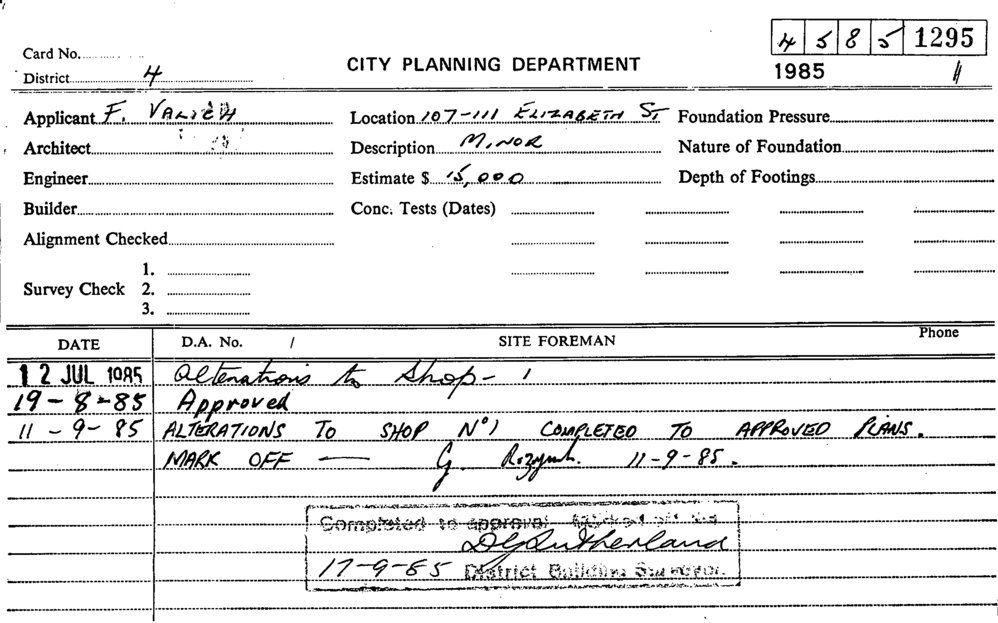 Card No.
4 5 8 5 1295
District 4
CITY PLANNING DEPARTMENT
1985
Applicant F.
Location 107-111 ELIZABETH ST
Foundation Pressure
Architect
Description MINOR
Nature of Foundation
Engineer
Estimate $ 15,000
Depth of Footings
Builder
Conc. Tests (Dates)
Alignment Checked
1.
Survey Check 2.
3.
DATE D.A. No. / SITE FOREMAN Phone
12 JUL 1985 Alterations to Shop - 1
19-8-85 Approved
11-9-85 ALTERATIONS TO SHOP Nº1 COMPLETED TO APPROVED PLANS.
MARK OFF — G. 11-9-85.
Completed to approval. Marked off
DG Sutherland
17-9-85 District Building Surveyor.